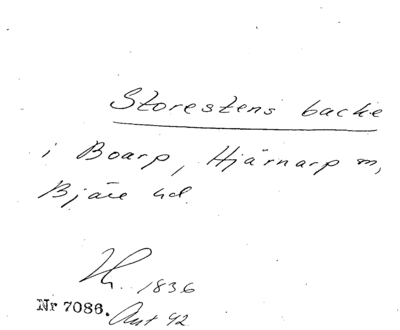 Storestens backe
i Boarp, Hjärnarp sn,
Bjäre hd.
1836
Nr 7086. Ant 42